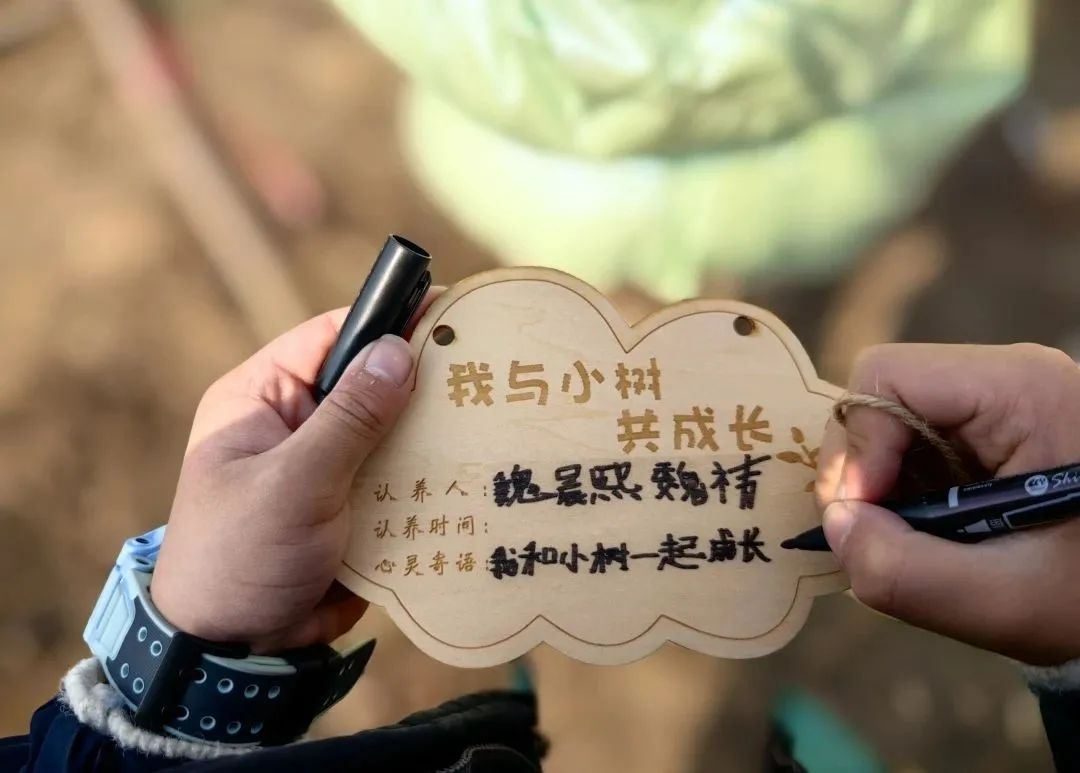 我与小树
共成长
认养人：魏晨熙 魏婧
认养时间：
心灵寄语：我和小树一起成长
Shi